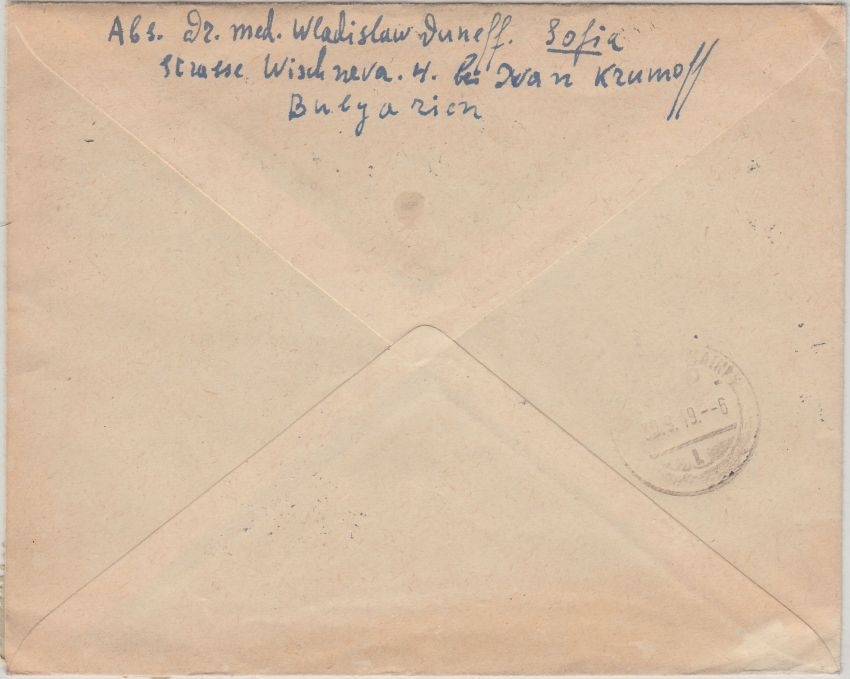 Abs. Dr. med. Wladislaw Duneff. Sofia
Strasse Wischneva. 4. bei Ivan Krumoff
Bulgarien
.9.49.--6
1